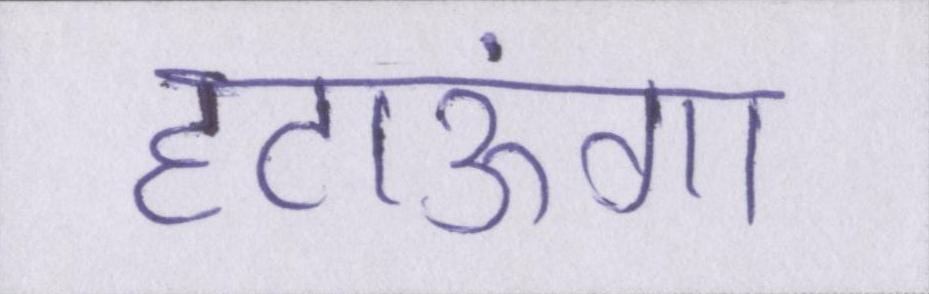 हटाऊंगा